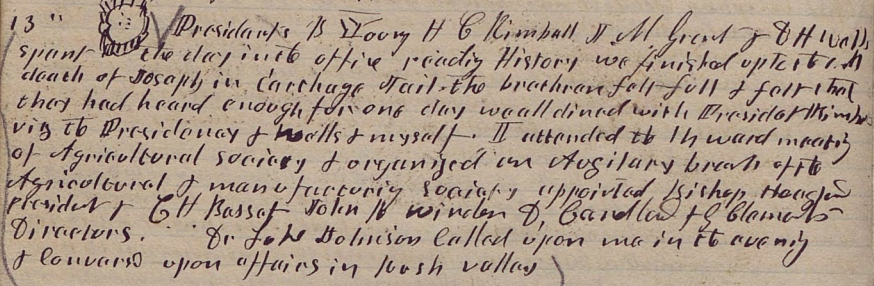 13" Presidents B Young H C Kimball J. M Grant & D H Wells
spent the day in the office reading History we finished up to the
death of Joseph in Carthage Jail. the brethren felt full & felt that
they had heard enough for one day we all dined with President Kimball
viz the Presidency & Wells & myself. I attended the 14 ward meeting
of Agricultural Society & organized an Auxilary branch of the
Agricultural & manufacturing Society appointed Bishop Hoagland
president & C H Basset John W Winder D, Candland & G Clements
Directors. Dr Johnson Called upon me in the evening
& Conversed upon affairs in Rush valley